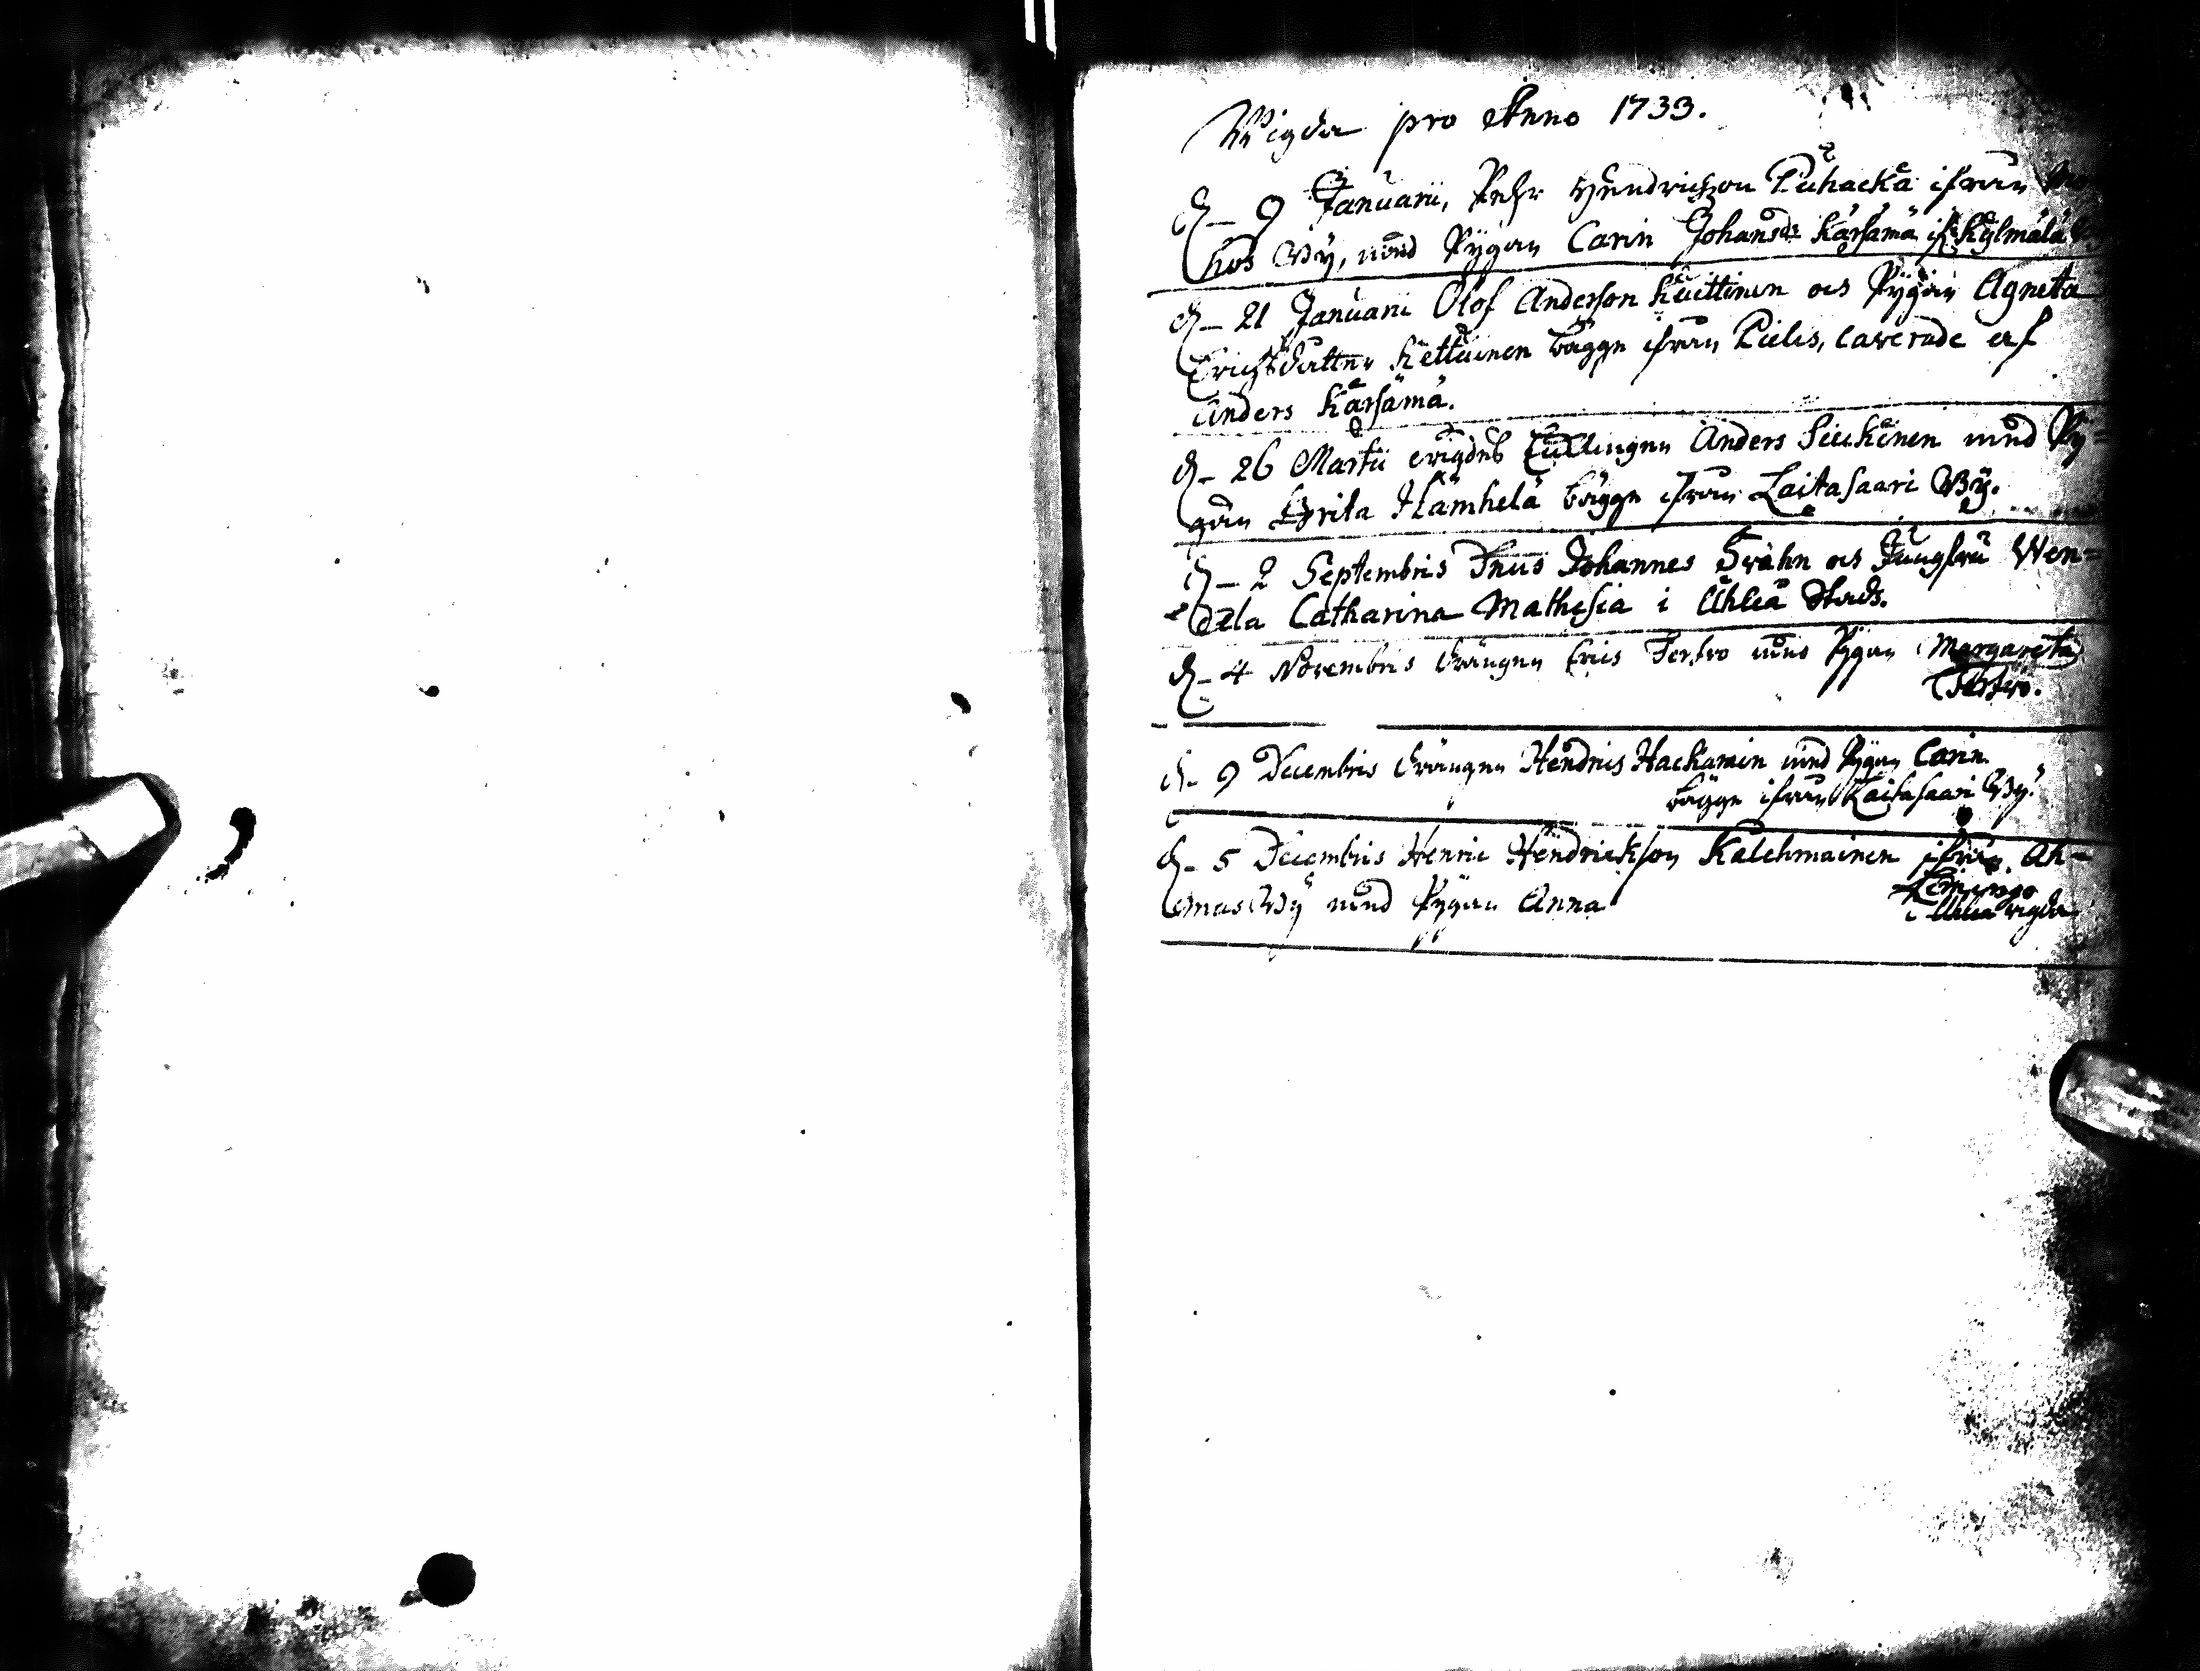 Wigda pro Anno 1733.
D. 9 Januarii, Pehr Hendrichzon Puhacka ifrån
hos By, med Pygan Carin Johansdr Kärsämä ifr. Kylmälä
D. 21 Januarii Olof Anderson Kuittinen och Pygan Agneta
Erichsdatter Kettuinen bägge ifrån Pielis, caverade af
Anders Kärsämä.
D. 26 Martii wigdes Enklingen Anders Siuhoinen med Py=
gan Brita Hamhela bägge ifrån Laitasaari By.
D. 2 Septembris Dnus Johannes Swahn och Jungfru Wen=
dela Catharina Mathesia i Uhleå Stad.
D. 4 Novembris drängen Eric Terfwo med Pygan Margareta
Terfwo.
D. 9 Decembris drängen Hendric Hackarain med Pygan Carin
bägge ifrån Laitasaari By.
D. 5 Decembris Henric Hendrickson Kalehmainen ifrån Ah=
mas By med Pygan Anna
Limingo
i Uhleå wigda